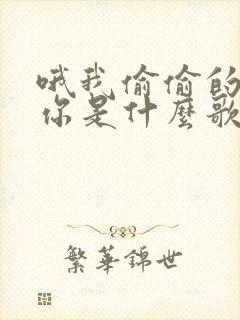 哦我偷偷的
你是什麼歌
繁華錦世